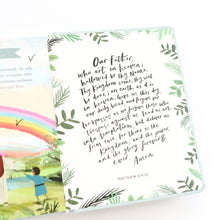 Our Father,
who art in heaven,
hallowed be thy Name,
thy Kingdom come, thy will
be done, on earth as it is
in heaven. Give us this day
our daily bread. And forgive us our
trespasses as we forgive those who
trespass against us. And lead us not
into temptation, but deliver us
from evil. For thine is the
Kingdom, and the power,
and the glory, forever and
ever. Amen.
MATTHEW 6:9-13